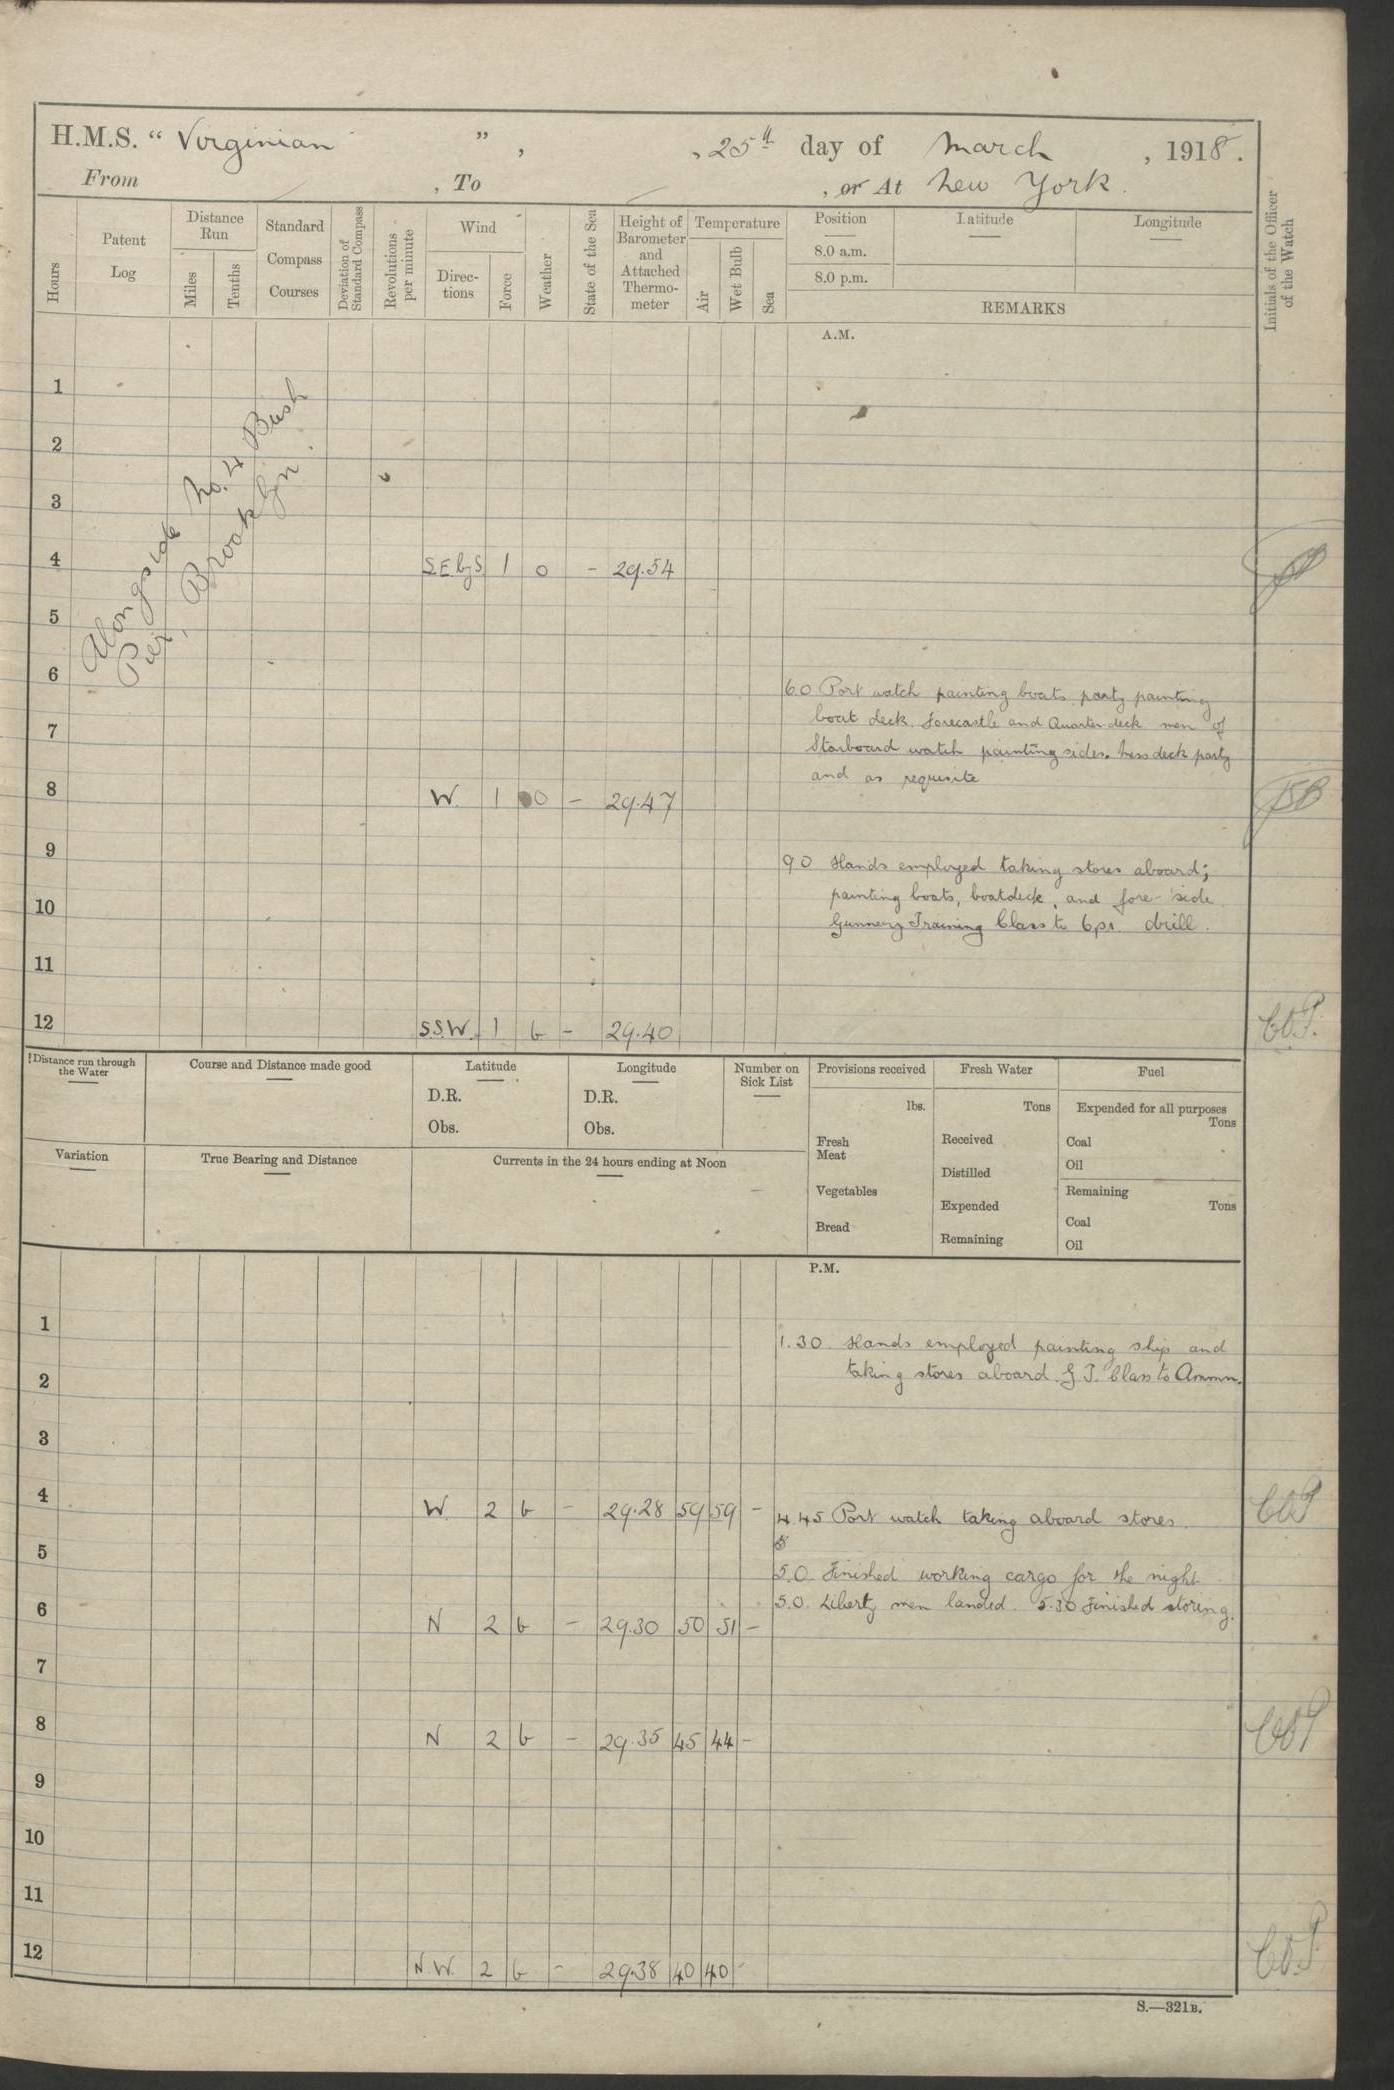 H.M.S. " Virginian ", , 25th day of March , 1918.
From , To , or At New York.
Hours
Patent Log
Distance Run
Miles
Tenths
Standard Compass Courses
Deviation of Standard Compass
Revolutions per minute
Wind
Directions
Force
Weather
State of the Sea
Height of Barometer and Attached Thermometer
Temperature
Air
Wet Bulb
Sea
Position
8.0 a.m.
8.0 p.m.
Latitude
Longitude
REMARKS
Initials of the Officer of the Watch
A.M.
Alongside No. 4 Bush
Pier, Brooklyn.
1
2
3
4 S.E. by S 1 o - 29.54
5
6
6 0 Port watch painting boats party painting
boat deck. Forecastle and Quarterdeck men of
7
Starboard watch painting sides. Mess deck party
and as requisite
8 W. 1 o - 29.47
9
9 0 Hands employed taking stores aboard;
painting boats, boatdeck, and fore side
10
Gunnery Training Class to 6pr. drill.
11
12 S.S.W. 1 b - 29.40
Distance run through the Water
Course and Distance made good
Latitude
D.R.
Obs.
Longitude
D.R.
Obs.
Number on Sick List
Provisions received
lbs.
Fresh Meat
Vegetables
Bread
Fresh Water
Tons
Received
Distilled
Expended
Remaining
Fuel
Expended for all purposes
Tons
Coal
Oil
Remaining
Tons
Coal
Oil
Variation
True Bearing and Distance
Currents in the 24 hours ending at Noon
P.M.
1
1.30. Hands employed painting ship and
2
taking stores aboard. G T. Class to Ammn.
3
4 W. 2 b - 29.28 59 59 -
4.45 Port watch taking aboard stores.
5
5.0. Finished working cargo for the night
5.0. Liberty men landed. 5.30 Finished storing.
6 N 2 b - 29.30 50 51 -
7
8 N 2 b - 29.35 45 44 -
9
10
11
12 N.W. 2 b - 29.38 40 40 -
S.—321B.